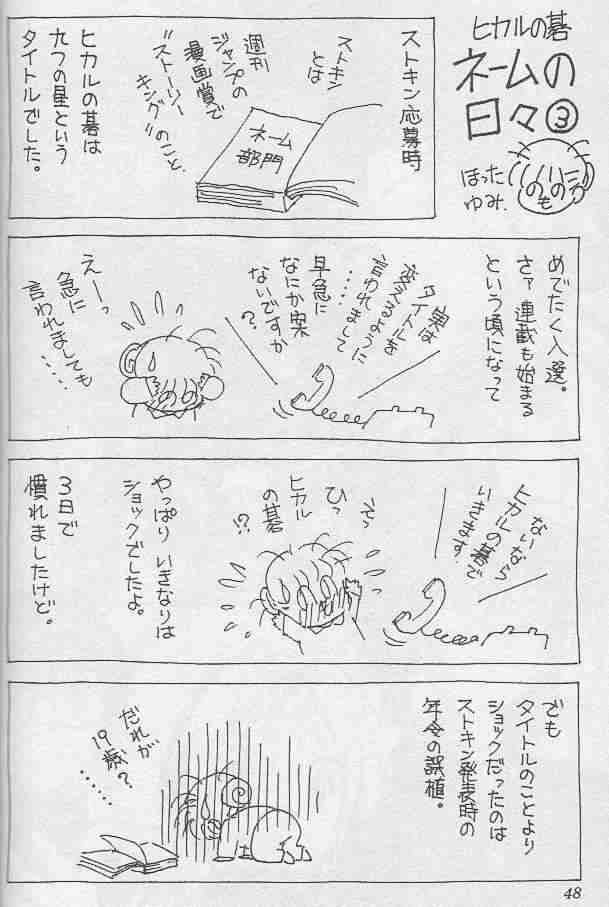 ヒカルの碁
ネームの
日々③
ほった
ゆみ.
ストキン応募時
ストキン
とは
週刊
ジャンプの
漫画賞で
“ストーリー
キング”のこと.
ネーム
部門
ヒカルの碁は
九つの星という
タイトルでした。
めでたく入選。
さァ連載も始まる
という頃になって
実は
タイトルを
変えるように
言われまして
・・・・・
早急に
なにか案
ないですか
?
えーっ
急に
言われましても
・・・・・
ないなら
ヒカルの碁で
いきます.
えっ
ひっ
ヒカル
の碁
!?
やっぱり いきなりは
ショックでしたよ。
3日で
慣れましたけど。
でも
タイトルのことより
ショックだったのは
ストキン発表時の
年令の誤植。
だれが
19歳?
・・・・・・
48